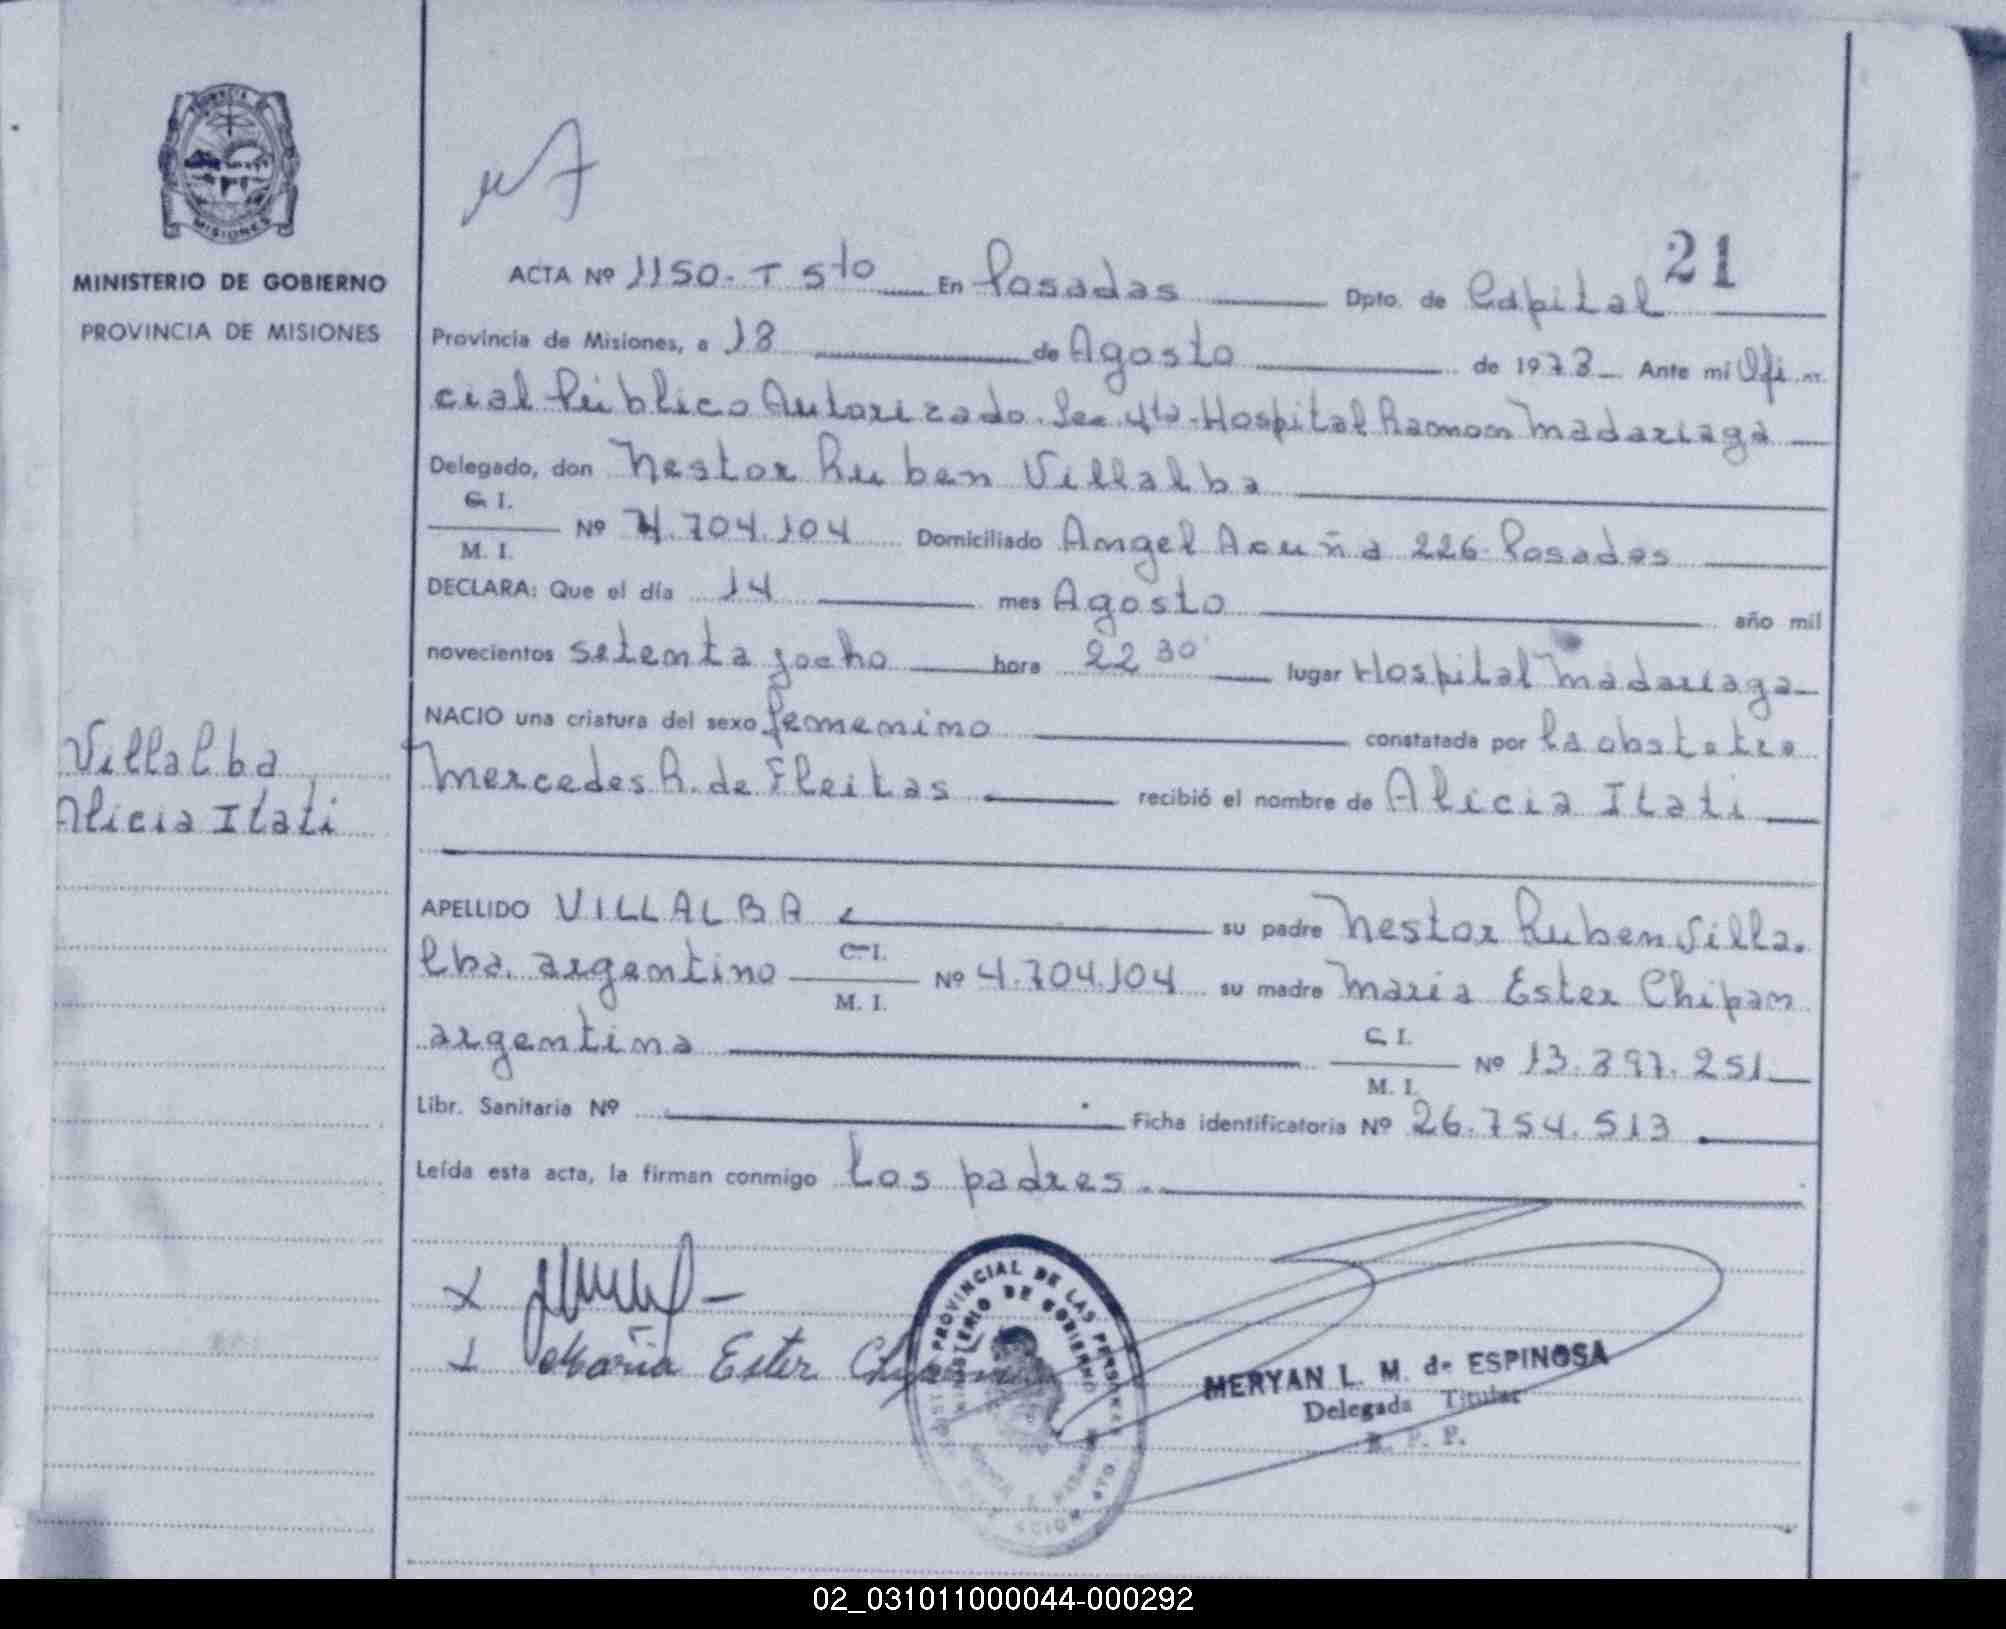 PROVINCIA DE
MISIONES
MINISTERIO DE GOBIERNO
PROVINCIA DE MISIONES
21
ACTA Nº 1150 - T 5to En Posadas Dpto. de Capital
Provincia de Misiones, a 18 de Agosto de 1978 Ante mi Ofi
cial Público Autorizado. Sec. 4ta - Hospital Ramon Madariaga
Delegado, don Nestor Ruben Villalba
C. I.
M. I. Nº 4.704.104 Domiciliado Angel Acuña 226 - Posadas
DECLARA: Que el día 14 mes Agosto año mil
novecientos setenta y ocho hora 22 30 lugar Hospital Madariaga
NACIO una criatura del sexo femenino constatada por la obstetra
Mercedes R. de Fleitas recibió el nombre de Alicia Itati
Villalba
Alicia Itati
APELLIDO VILLALBA su padre Nestor Ruben Villa
lba. argentino C. I. M. I. Nº 4.704.104 su madre Maria Ester Chipan
argentina C. I. M. I. Nº 13.897.251
Libr. Sanitaria Nº Ficha identificatoria Nº 26.754.513
Leída esta acta, la firman conmigo Los padres.
Maria Ester
PROVINCIAL DE LAS PERSONAS
MINISTERIO DE GOBIERNO
MERYAN L. M. de ESPINOSA
Delegada Titular
R. P. P.
02_031011000044-000292